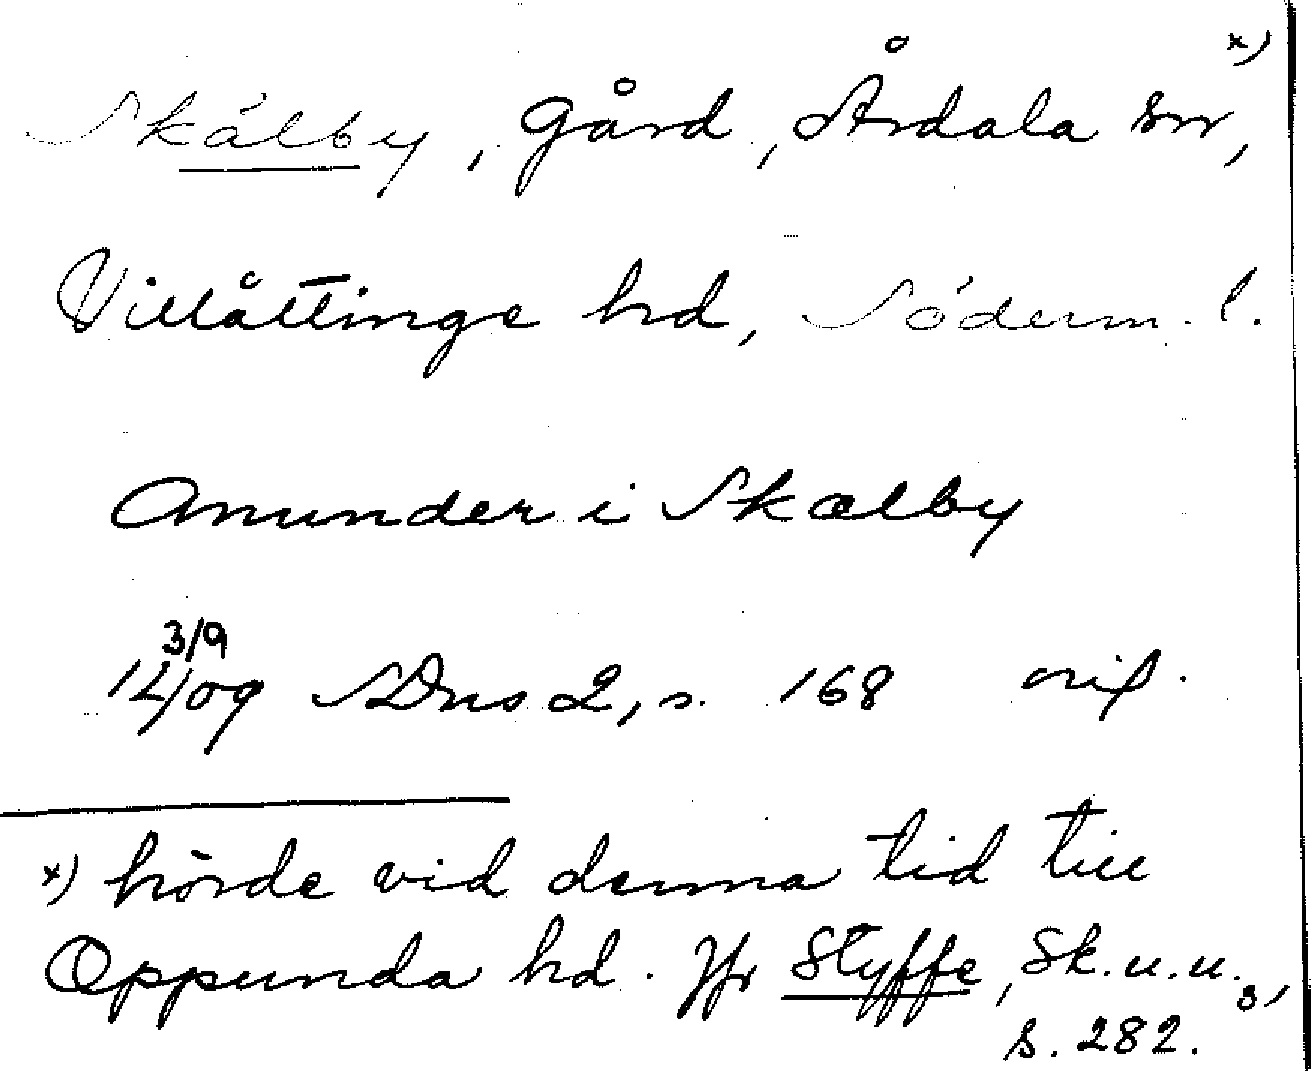 Skälby, Gård, Årdala sn, x)
Villåttinge hd, Söderm. l.
Anunder i Skælby
3/9
1409 SDns 2, s. 168 orig.
x) hörde vid denna tid till
Oppunda hd. Jfr Styffe, Sk. u. u. 3,
s. 282.